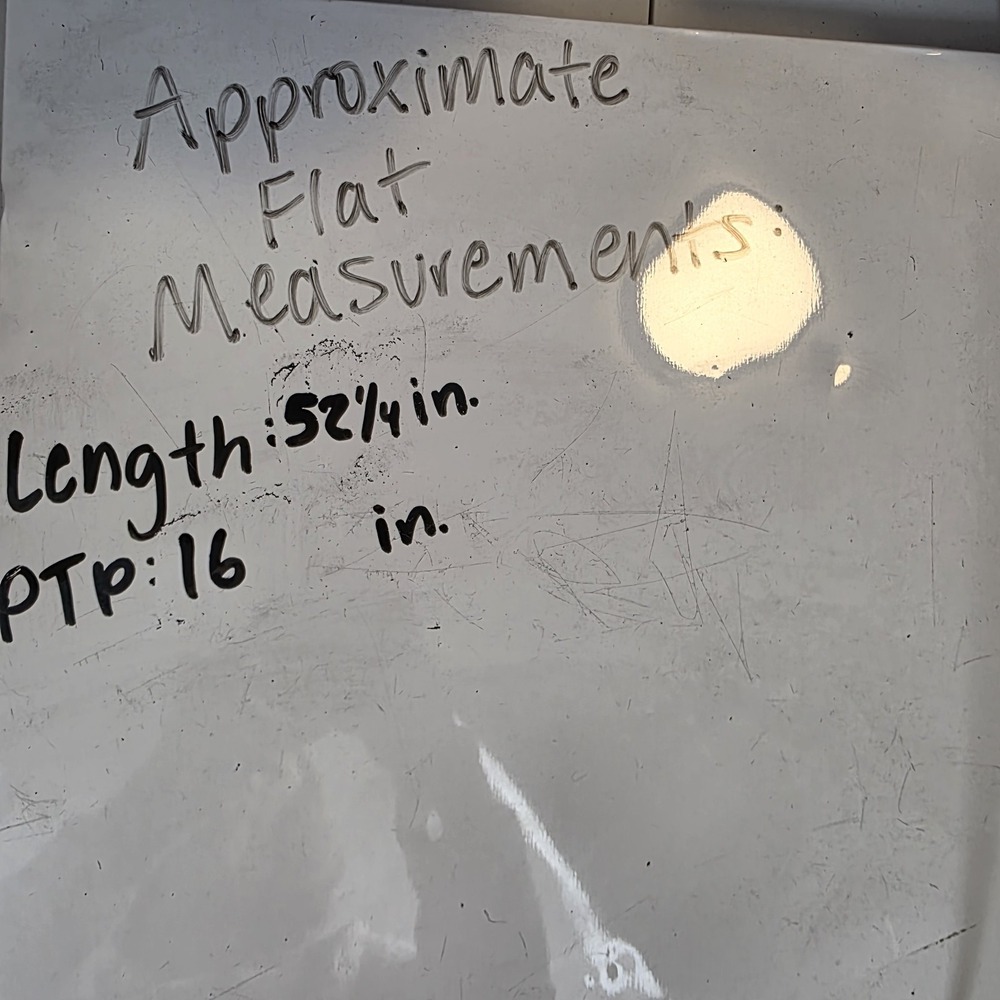 Approximate
Flat
Measurements:
Length: 52 1/4 in.
PTP: 16 in.